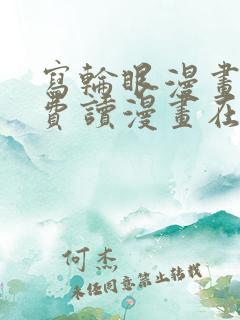 寫輪眼漫畫
費讀漫畫在
何杰
未经同意禁止转载